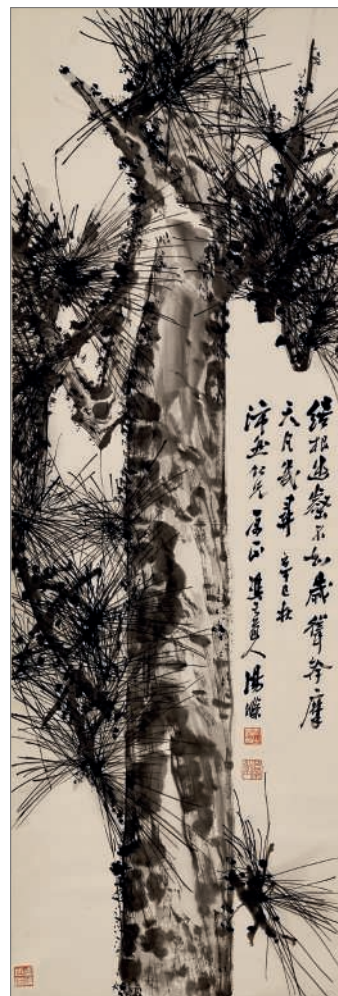 結根幽壑不知歲聳幹摩
天凡幾尋 辛巳秋
仁兄屬正 雙于道人湯滌